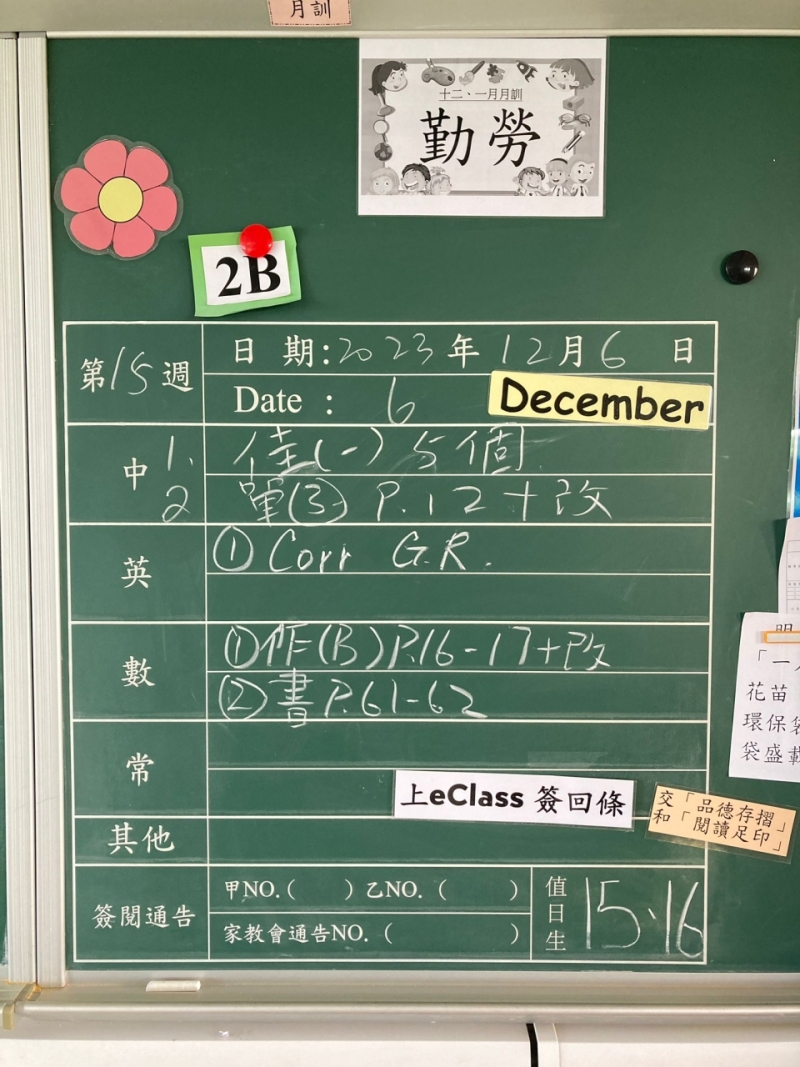 月訓
十二、一月月訓
勤勞
2B
第15週
日期:2023年12月6日
Date : 6 December
中
1. 佳(一)5個
2 單(3) P.12+改
英
① Corr G.R.
數
①作(B)P.16-17+改
②書P.61-62
常
上eClass 簽回條
其他
交「品德存摺」
和「閱讀足印」
簽閱通告
甲NO.( )乙NO.( )
家教會通告NO.( )
值日生
15、16
「一人
花苗
環保袋
袋盛載